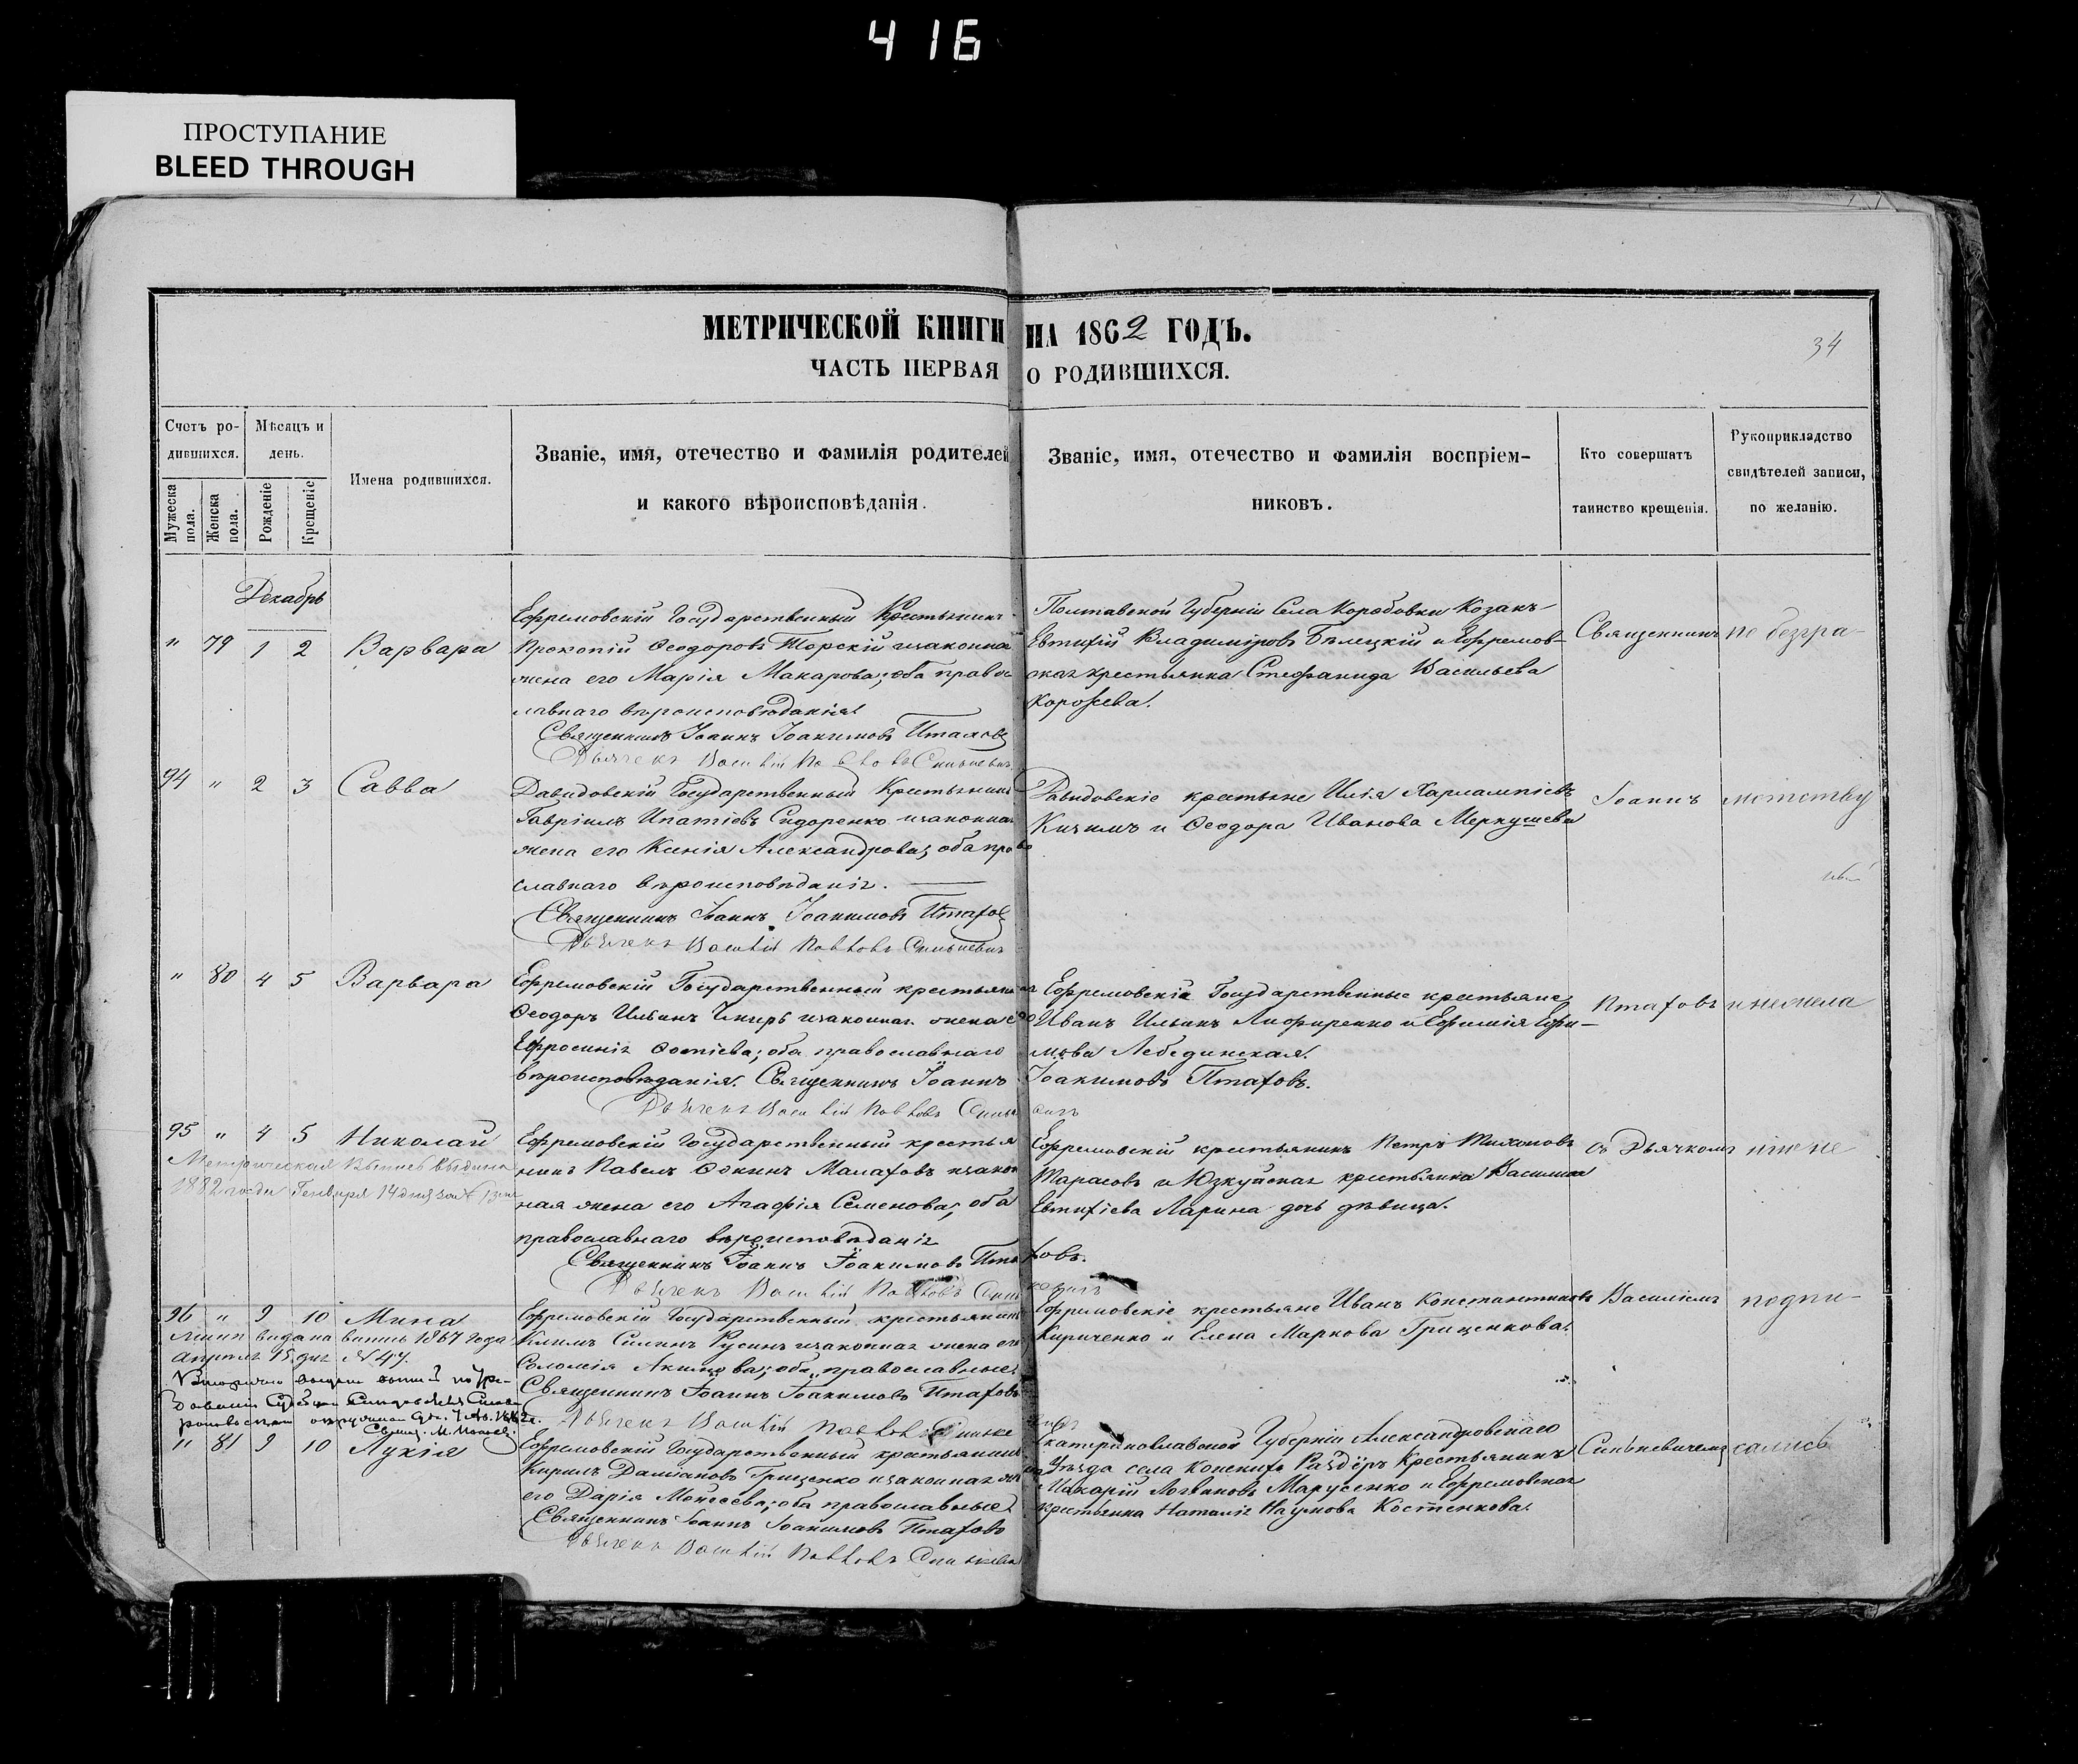 416
ПРОСТУПАНИЕ
BLEED THROUGH
МЕТРИЧЕСКОЙ КНИГИ НА 1862 ГОДЪ.
34
ЧАСТЬ ПЕРВАЯ О РОДИВШИХСЯ.
Счетъ ро-
дившихся.
Мѣсяцъ и
день.
Мужеска
пола.
Женска
пола.
Рожденіе
Крещеніе
Имена родившихся.
Званіе, имя, отечество и фамилія родителей
и какого вѣроисповѣданія.
Званіе, имя, отечество и фамилія воспріем-
никовъ.
Кто совершатъ
таинство крещенія.
Рукоприкладство
свидѣтелей записи,
по желанію.
Декабрь
" 79 1 2 Варвара
Ефремовскій Государственный Крестьянинъ
Прокопій Ѳеодоровъ Торскій и законная
жена его Марія Макарова; оба право
славнаго вѣроисповѣданія.
Священникъ Іоаннъ Іоакимовъ Птаховъ
Дьячекъ Василій Павловъ Синькевичъ
Полтавской Губерніи Села Коробовки Козакъ
Евтихій Владиміровъ Бѣлецкій и Ефремов-
ская крестьянка Стефанида Васильева
Священникъ
по безгра-
94 " 2 3 Савва
Давидовскій Государственный Крестьянинъ
Гавріилъ Ипатіевъ Сидоренко и законная
жена его Ксенія Александрова; оба право
славнаго вѣроисповѣданія.
Священникъ Іоаннъ Іоакимовъ Птахов
Дьячекъ Василій Павловъ Синькевичъ
Давидовскіе крестьяне Илія Харлампіевъ
Кизимъ и Ѳеодора Иванова Меркушева
Іоаннъ
мотству
" 80 4 5 Варвара
Ефремовскій Государственный крестьянинъ
Ѳеодоръ Ильинъ и законная жена его
Ефросинія Фотіева; оба православнаго
вѣроисповѣданія. Священникъ Іоаннъ Іоакимовъ Птаховъ.
Дьячекъ Василій Павловъ Синькевичъ
Ефремовскіе Государственные крестьяне
Иванъ Ильинъ и Ефимія Ефи-
мова Лебединская.
Птаховъ
и неумела
95 " 4 5 Николай
Метрическая Выпись выдана
1882 года Генваря 14 дня за №
Ефремовскій Государственный крестья
нинъ Павелъ Ѳокинъ Малаховъ и закон
ная жена его Агафія Семенова; оба
православнаго вѣроисповѣданія
Священникъ Іоаннъ Іоакимовъ Птаховъ.
Дьячекъ Василій Павловъ Синькевичъ
Ефремовскій крестьянинъ Петръ Тихоновъ
Тарасовъ и Юзкуйская крестьянка Василиса
Евтихіева Ларина дочь дѣвица.
съ Дьячкомъ
96 " 9 10 Мина
выдана выпись 1867 года
Апреля 15 дня № 47.
Ефремовскій Государственный крестьянинъ
Климъ Силинъ Русинъ и законная жена его
Соломія Акимова; оба православные.
Священникъ Іоаннъ Іоакимовъ Птаховъ
Дьячекъ Василій Павловъ Синьке
Ефремовскіе крестьяне Иванъ Константиновъ
Кириченко и Елена Маркова Грищенкова.
Василіемъ
подпи-
" 81 9 10 Лукія
Ефремовскій Государственный крестьянинъ
Кирилъ Даміановъ Грищенко и законная жена
его Дарія Моисеева; оба православные.
Священникъ Іоаннъ Іоакимовъ Птаховъ
Дьячекъ Василій Павловъ Синькевичъ
Екатеринославской Губерніи Александровскаго
Уѣзда села Конскихъ Раздоръ Крестьянинъ
Макарій Логвиновъ Марусенко и Ефремовская
крестьянка Наталія Наумова Костенкова.
Синькевичемъ
сались